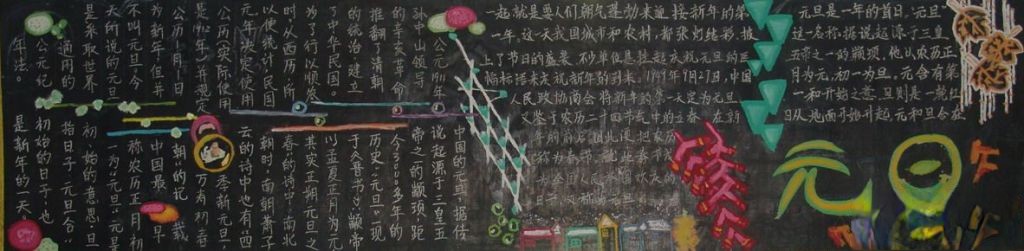 元旦是一年的首日,“元旦”
这一名称,据说起源于三皇
五帝之一的颛顼,他以农历正
月为元,初一为旦。元含有第
一和开始之意,旦则是一轮红
日从地面冉冉升起,元和旦合在
一起,就是要人们朝气蓬勃来迎接新年的第
一年。这一天我国城市和农村,都张灯结彩,披
上了节日的盛装,不少单位悬挂起庆祝元旦的
标语来庆祝新年的到来。1949年9月27日,中国
人民政协商会将新年的第一天定为元旦
又鉴于农历二十四节气中的立春
元旦
中国的元旦,据传
说起源于三皇五
帝之一的颛顼,距
今3000多年的
历史。“元旦”现
于《晋书》:“颛帝
以孟夏正月为元,
其实正朔元旦之
春”的诗中。南北
朝时,南朝萧子
云的诗中也有“四
季新元旦,
万寿初春
朝”的记载
中国最早
称农历正月初
为“元旦”,元是
初、始的意思,旦
指日子,元旦合
初始的日子,也
是新年的一天。
公元1911年
孙中山领导
的辛亥革命
推翻了清朝
的统治,建立
了中华民国。
为了行以顺农
时,从西历所
以便统计,民国
元年决定使用
公历(实际使用
是1912年),并规定
公历1月1日
为新年,但并
不叫元旦。今
天所说的元旦
是采取世界
通用的
公元纪
年法。